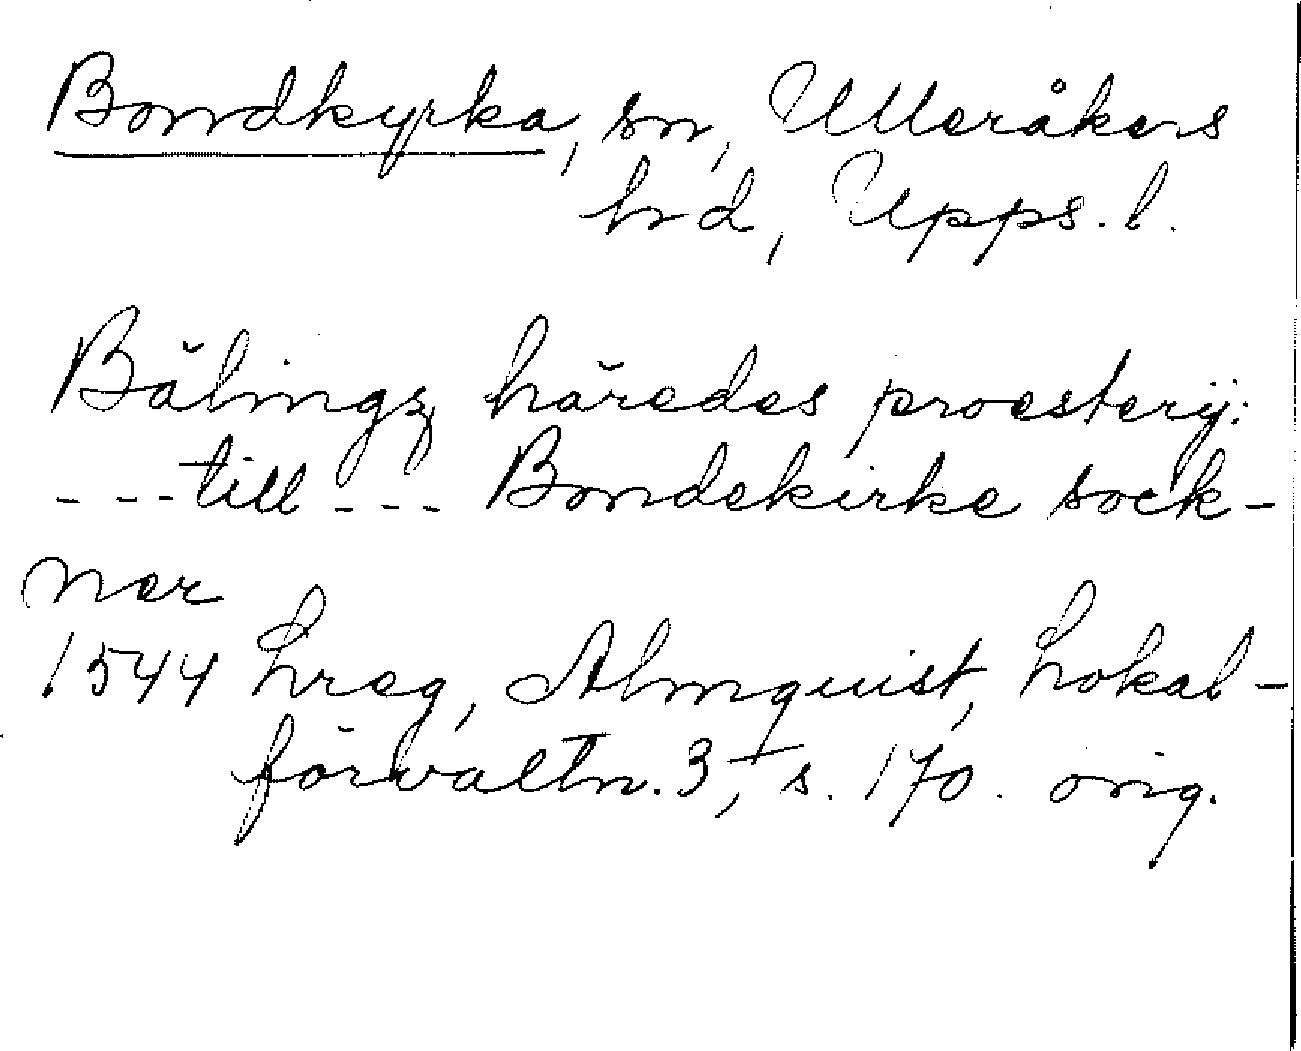 Bondkyrka, sn, Ulleråkers
hd, Upps. l.
Bălingz hăredes proesterij:
- - - till - - - Bondekirke sock-
ner
1544 Lreg, Almquist, Lokal-
förvaltn. 3, s. 170. orig.